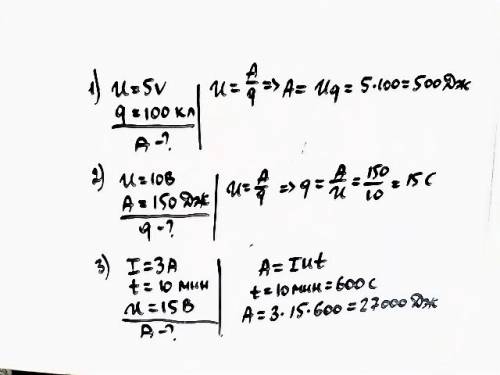 1) U=5V
q=100 Кл
A-?
U=A/q => A= Uq = 5·100=500 Дж
2) U=10В
A=150 Дж
q-?
U=A/q => q=A/U=150/10=15 C
3) I=3A
t=10 мин
U=15В
A-?
A=IUt
t=10мин=600с
A=3·15·600=27000 Дж